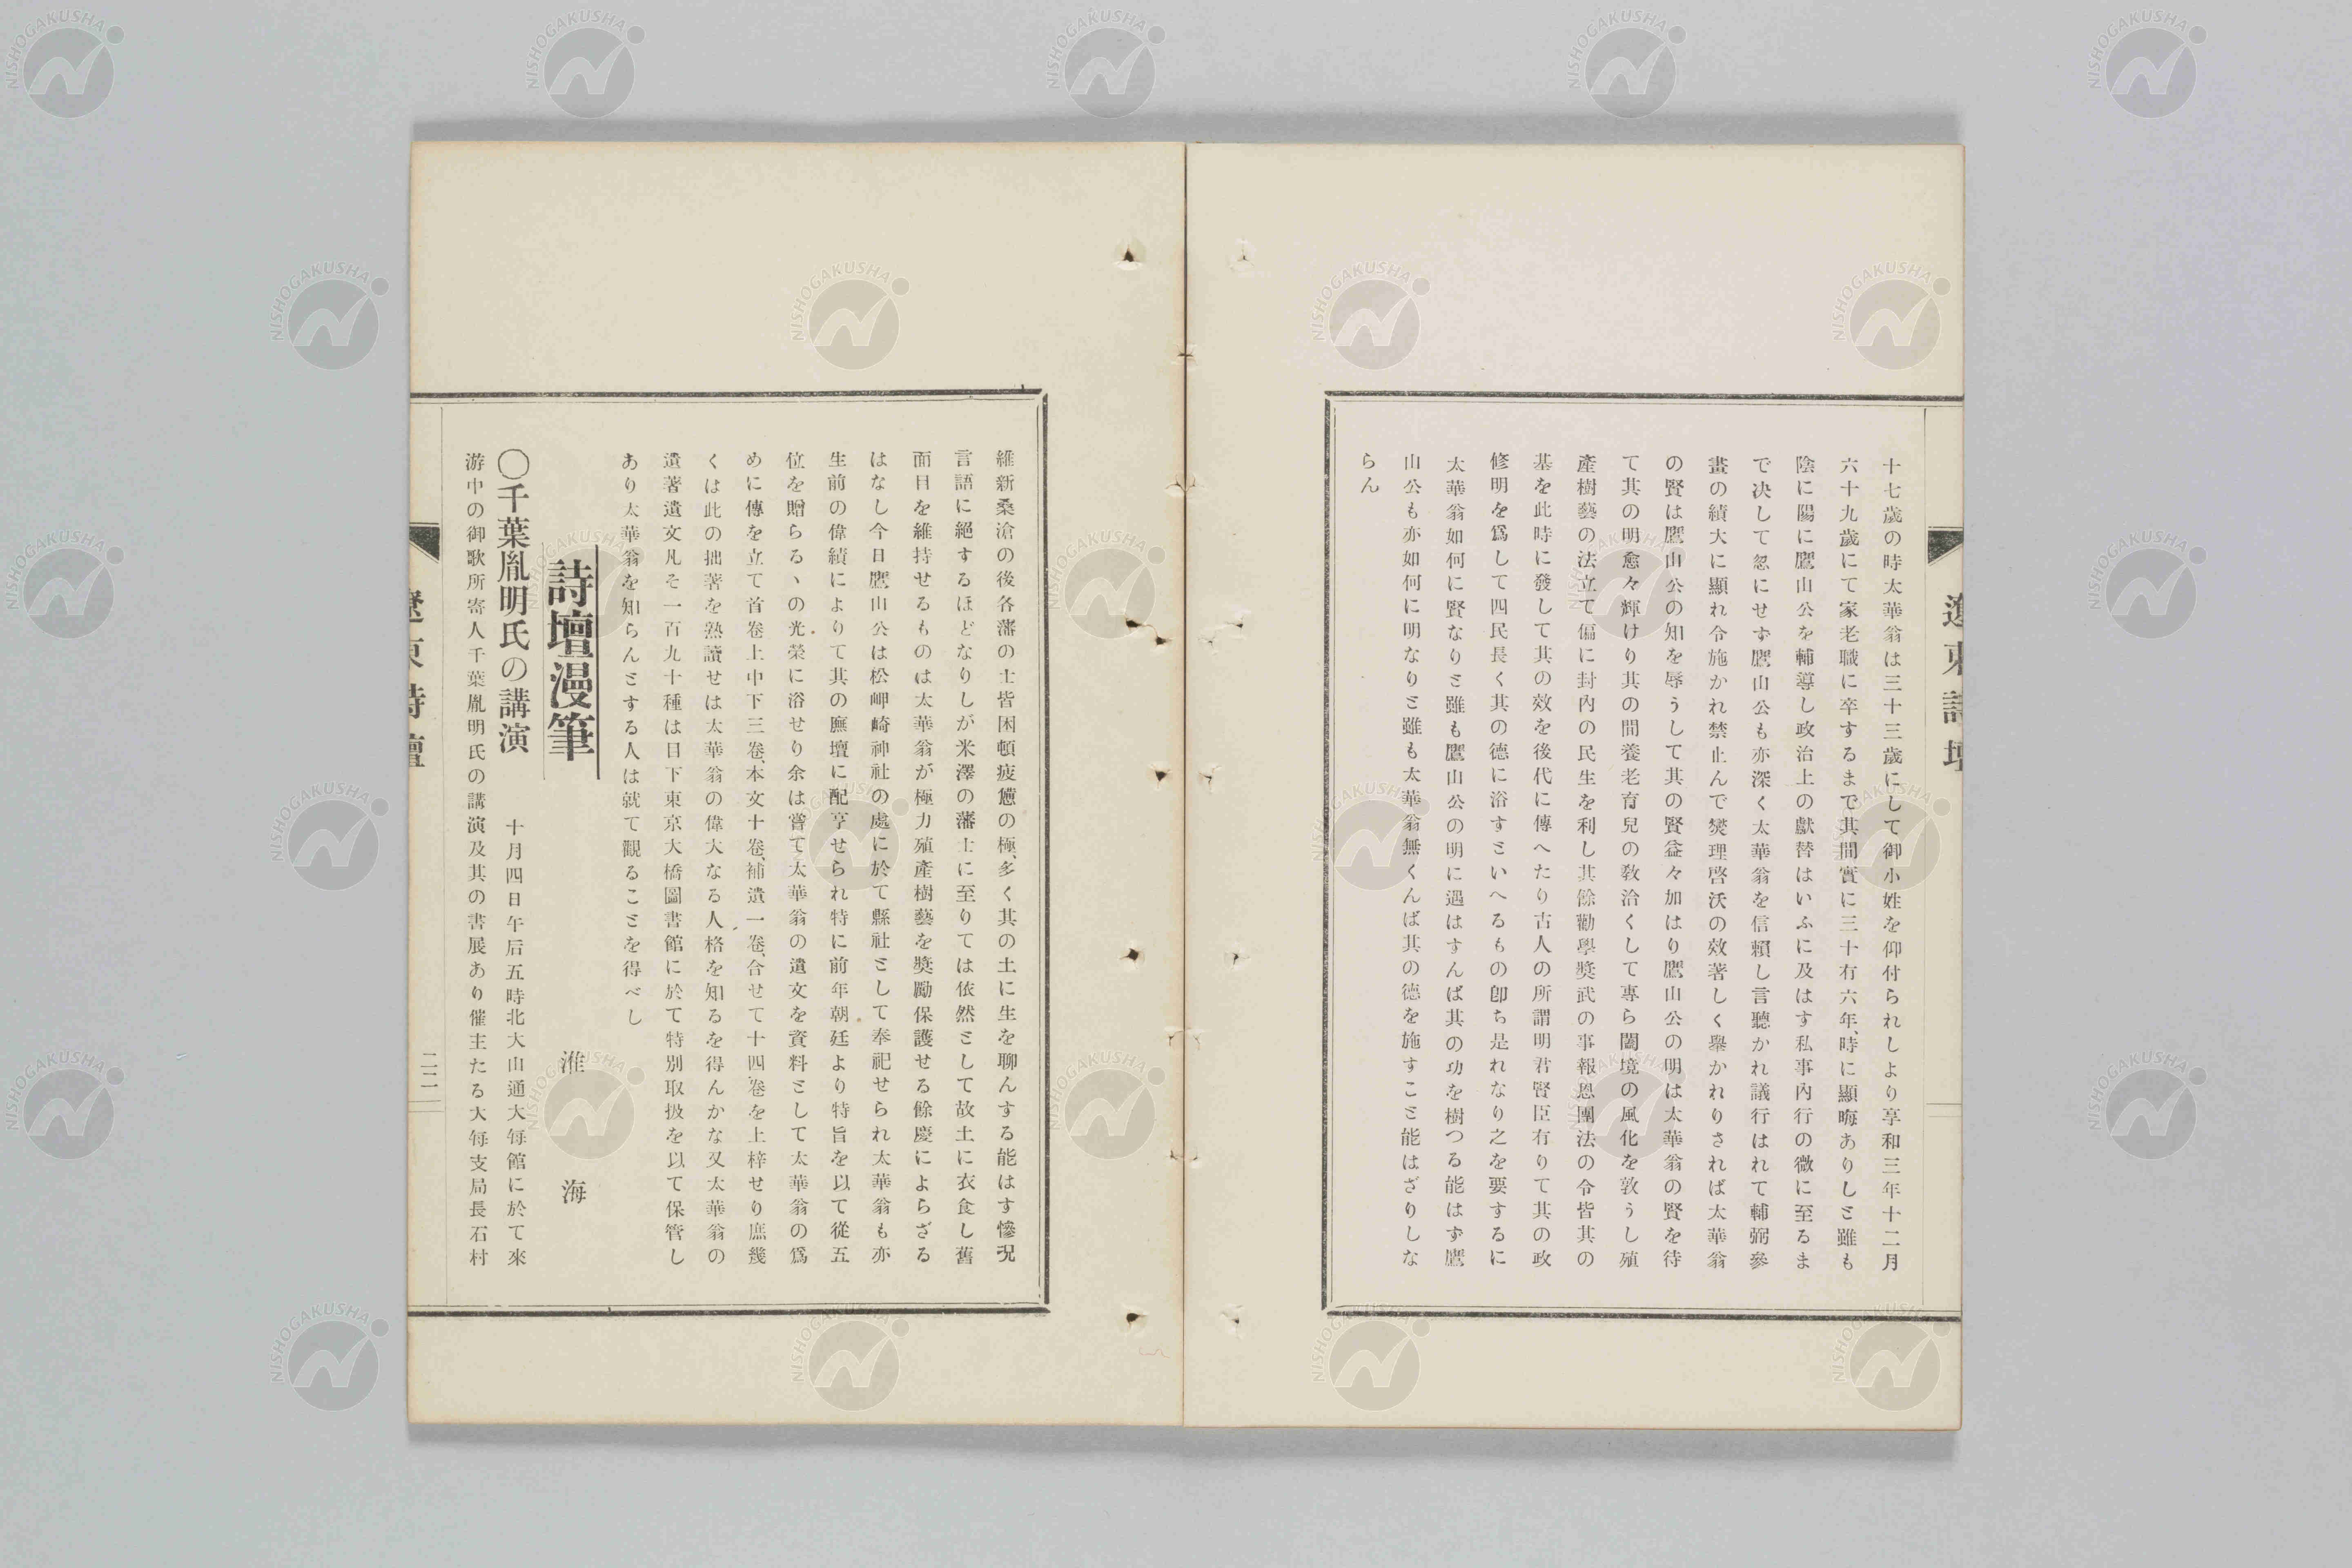 十七歲の時太華翁は三十三歲にして御小姓を仰付られしより享和三年十二月
六十九歲にて家老職に卒するまで其間實に三十有六年、時に顯晦ありしと雖も
陰に陽に鷹山公を輔導し政治上の獻替はいふに及はす私事內行の微に至るま
で决して忽にせず鷹山公も亦深く太華翁を信賴し言聽かれ議行はれて輔弼參
畫の績大に顯れ令施かれ禁止んで爕理啓沃の效著しく擧かれりされば太華翁
の賢は鷹山公の知を辱うして其の賢益々加はり鷹山公の明は太華翁の賢を待
て其の明愈々輝けり其の間養老育兒の敎洽くして專ら闔境の風化を敦うし殖
產樹藝の法立て偏に封內の民生を利し其餘勸學奬武の事報恩團法の令皆其の
基を此時に發して其の效を後代に傳へたり古人の所謂明君賢臣有りて其の政
修明を爲して四民長く其の德に浴すといへるもの卽ち是れなり之を要するに
太華翁如何に賢なりと雖も鷹山公の明に遇はすんば其の功を樹つる能はず鷹
山公も亦如何に明なりと雖も太華翁無くんば其の德を施すこと能はざりしな
らん
維新桑滄の後各藩の士皆困頓疲憊の極、多く其の土に生を聊んする能はす慘況
言語に絕するほどなりしが米澤の藩士に至りては依然として故土に衣食し舊
面目を維持せるものは太華翁が極力殖產樹藝を奬勵保護せる餘慶によらざる
はなし今日鷹山公は松岬崎神社の處に於て縣社として奉祀せられ太華翁も亦
生前の偉績によりて其の廡壇に配享せられ特に前年朝廷より特旨を以て從五
位を贈らるヽの光榮に浴せり余は嘗て太華翁の遺文を資料として太華翁の爲
めに傳を立て首卷上中下三卷、本文十卷、補遺一卷、合せて十四卷を上梓せり庶幾
くは此の拙著を熟讀せは太華翁の偉大なる人格を知るを得んかな又太華翁の
遺著遺文凡そ一百九十種は目下東京大橋圖書館に於て特別取扱を以て保管し
あり太華翁を知らんとする人は就て觀ることを得べし
詩壇漫筆
淮海
〇千葉胤明氏の講演 十月四日午后五時北大山通大每館に於て來
游中の御歌所寄人千葉胤明氏の講演及其の書展あり催主たる大每支局長石村
遼東詩壇
二二